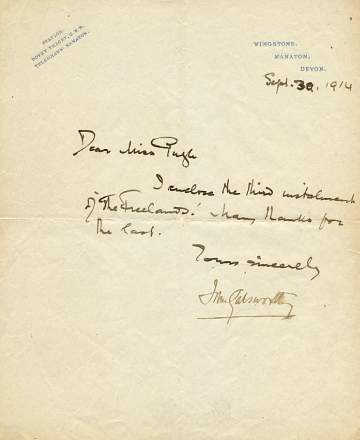 STATION,
BOVEY TRACEY, G.W.R.
TELEGRAMS, MANATON.
WINGSTONE,
MANATON,
DEVON.
Sept. 30, 1914
Dear Miss Pugh
I enclose the third instalment
of 'The Freelands.' Many thanks for
the last.
Yours sincerely
John Galsworthy